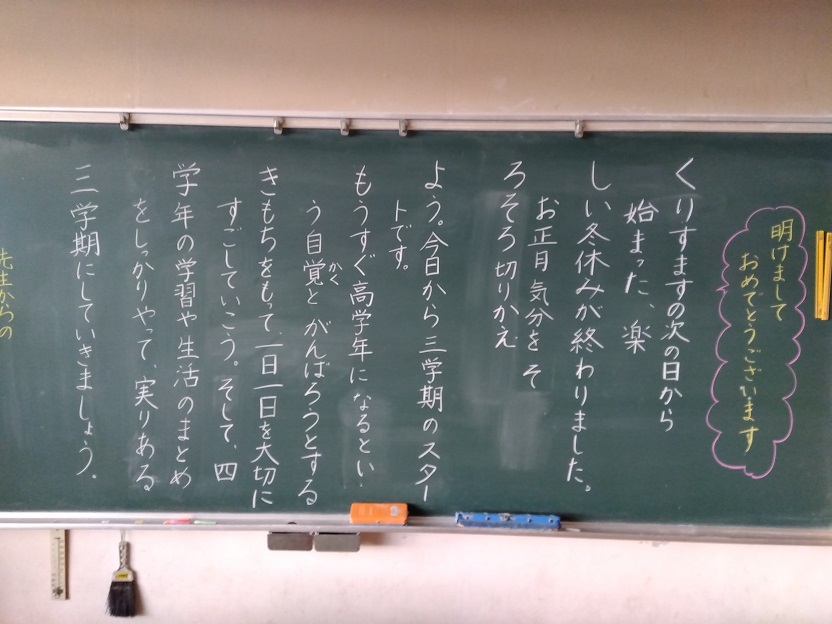 明けまして
おめでとうございます
くりすますの次の日から
始まった、楽
しい冬休みが終わりました。
お正月気分をそ
ろそろ切りかえ
よう。今日から三学期のスター
トです。
もうすぐ高学年になるとい
う自覚とがんばろうとする
かく
きもちをもって、一日一日を大切に
すごしていこう。そして、四
学年の学習や生活のまとめ
をしっかりやって、実りある
三学期にしていきましょう。
先生からの